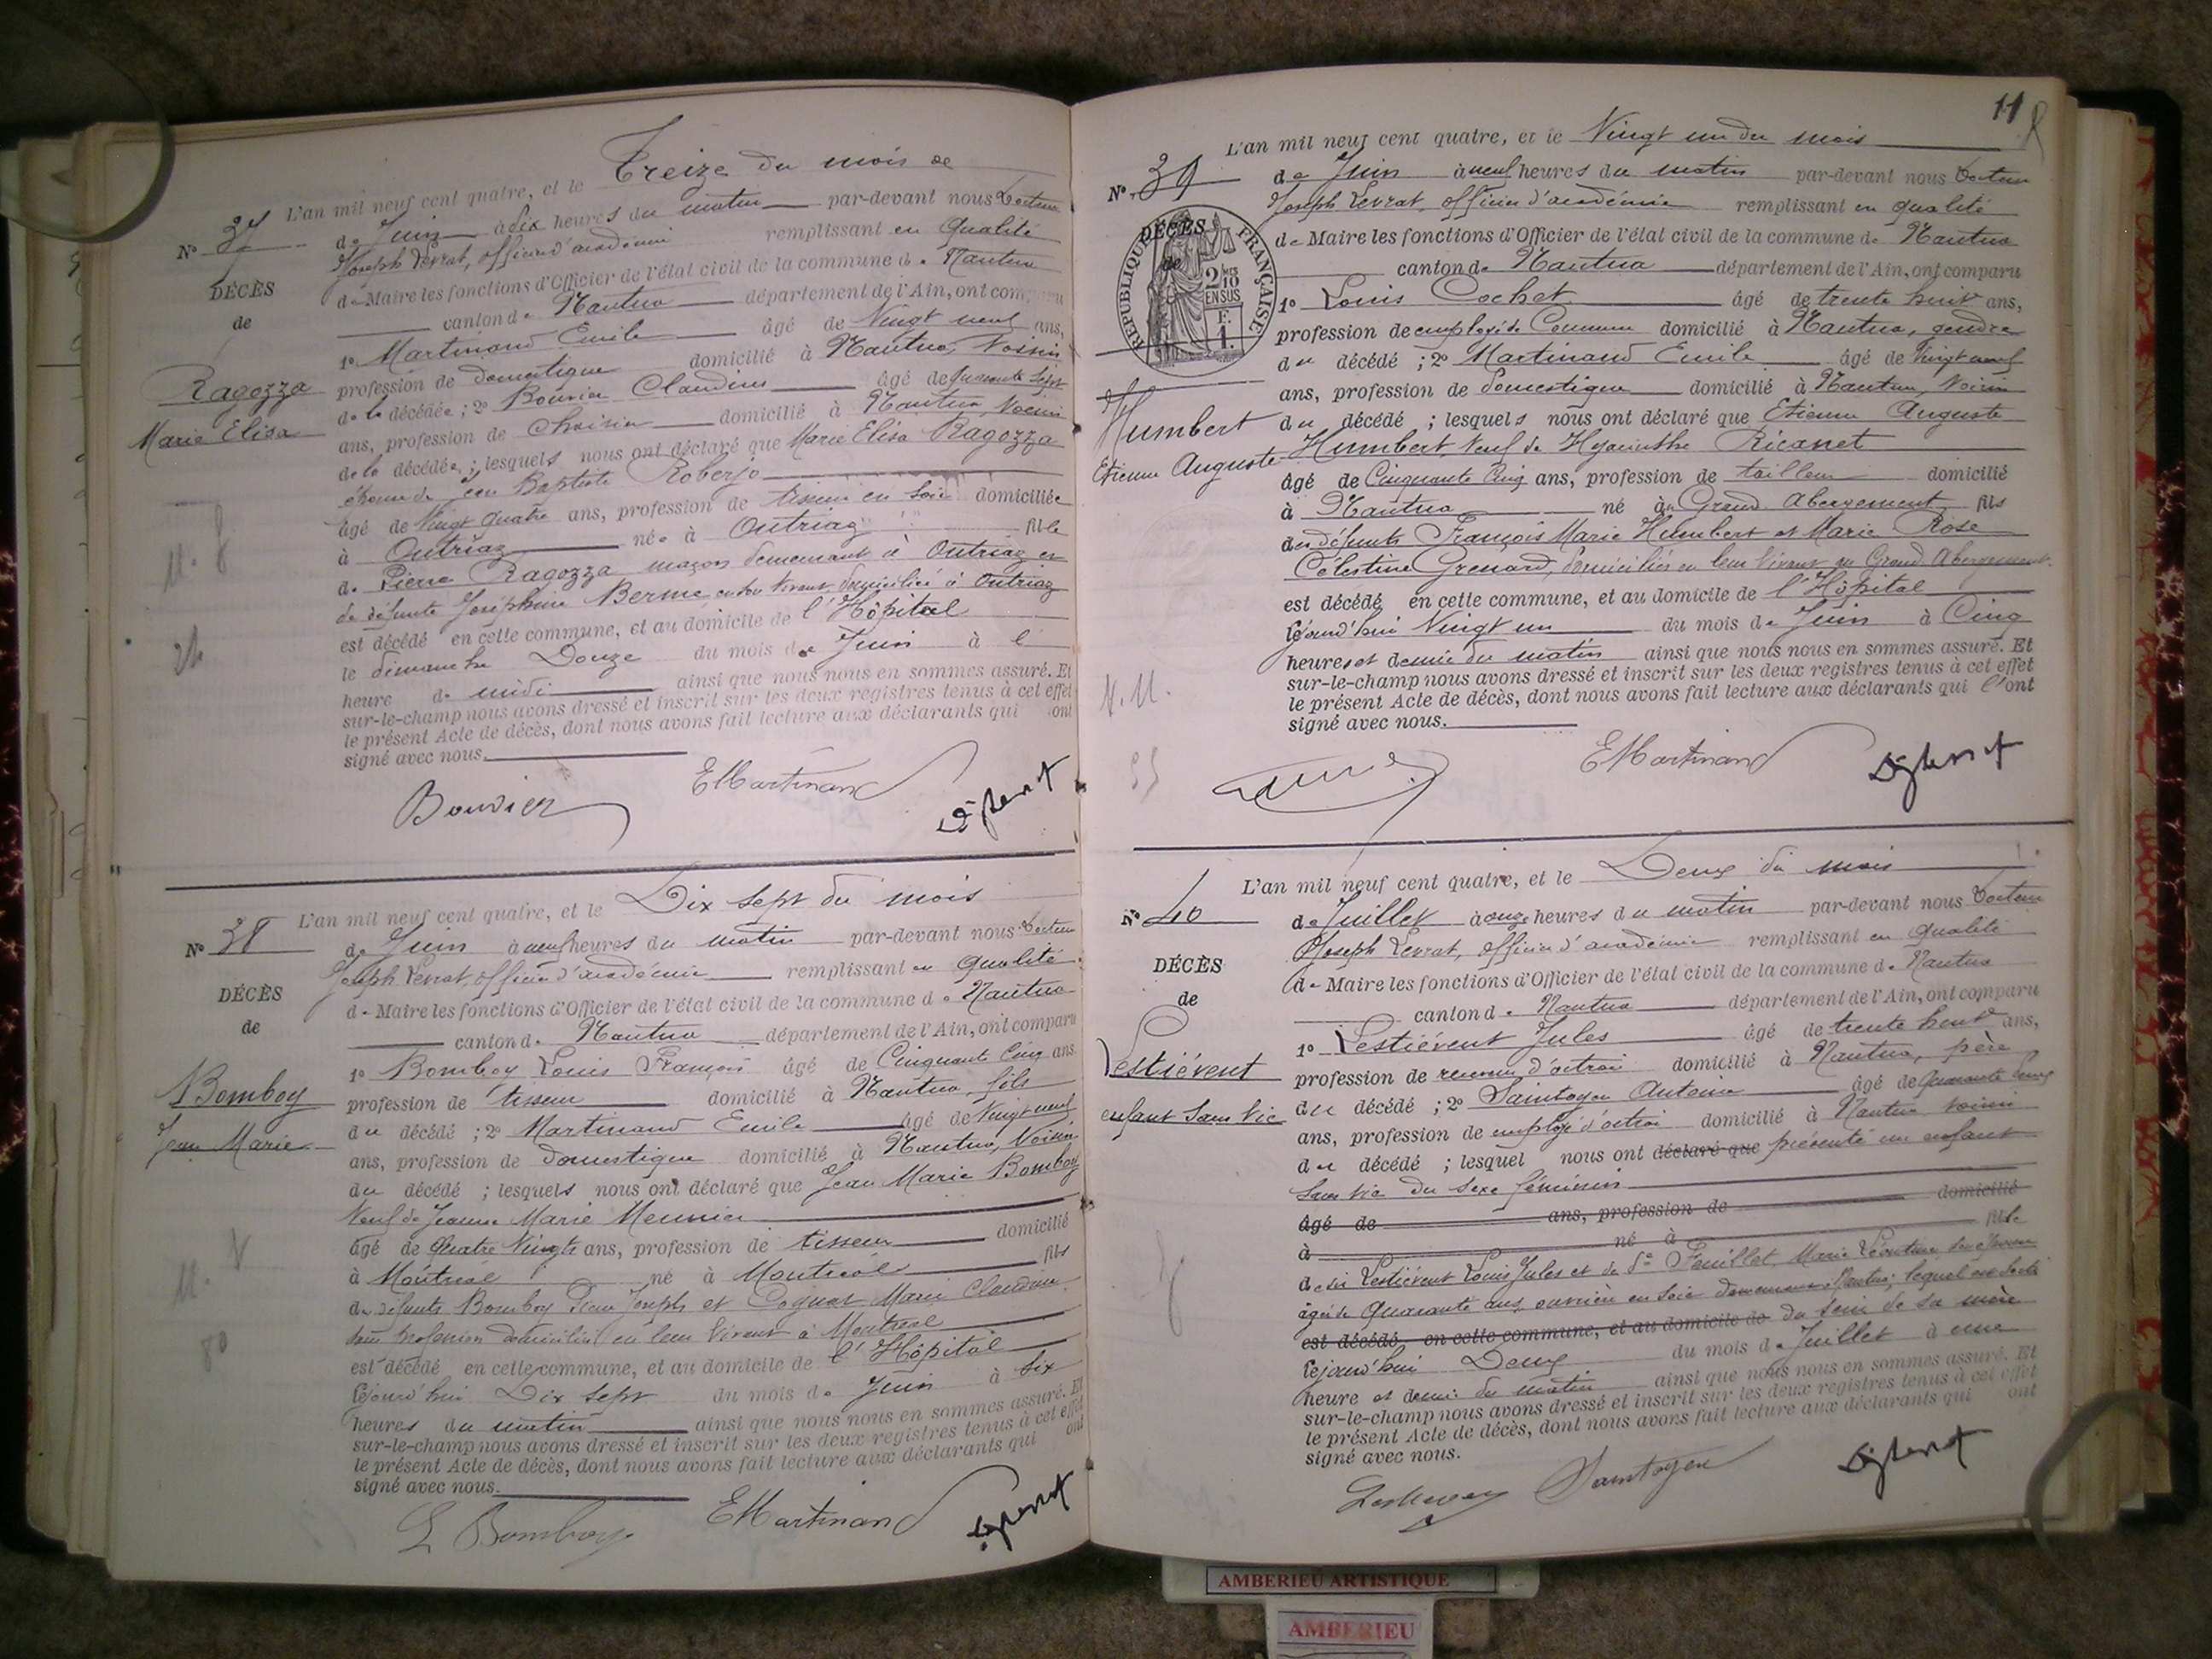 L'an mil neuf cent quatre, et le Treize du mois de
N° 37 de Juin à dix heures du matin par-devant nous Docteur
Joseph Levrat, officier d'académie remplissant en qualité
DÉCÈS de Maire les fonctions d'Officier de l'état civil de la commune de Nantua
de canton de Nantua département de l'Ain, ont comparu
1° Martinand Emile âgé de Vingt neuf ans,
Ragozza profession de domestique domicilié à Nantua, Voisin
Marie Elisa de la décédée ; 2° Bouvier Claudius âgé de quarante sept
ans, profession de domicilié à Nantua, Voisin
de la décédée ; lesquels nous ont déclaré que Marie Elisa Ragozza
épouse de Jean Baptiste Roberjo
âgé de Vingt quatre ans, profession de tisseuse en soie domiciliée
à Outriaz née à Outriaz fille
de Pierre Ragozza maçon demeurant à Outriaz et
de défunte Joséphine Berme en son vivant domiciliée à Outriaz
est décédé en cette commune, et au domicile de l'Hôpital
le dimanche Douze du mois de Juin à l'
heure de midi ainsi que nous nous en sommes assuré. Et
sur-le-champ nous avons dressé et inscrit sur les deux registres tenus à cet effet
le présent Acte de décès, dont nous avons fait lecture aux déclarants qui ont
signé avec nous.
Bouvier EMartinand
L'an mil neuf cent quatre, et le Dix sept du mois
N° 38 de Juin à neuf heures du matin par-devant nous Docteur
Joseph Levrat, officier d'académie remplissant en qualité
DÉCÈS de Maire les fonctions d'Officier de l'état civil de la commune de Nantua
de canton de Nantua département de l'Ain, ont comparu
1° Bomboy Louis François âgé de Cinquante Cinq ans
Bomboy profession de tisseur domicilié à Nantua, fils
Jean Marie du décédé ; 2° Martinand Emile âgé de Vingt neuf
ans, profession de domestique domicilié à Nantua, Voisin
du décédé ; lesquels nous ont déclaré que Jean Marie Bomboy
Veuf de Jeanne Marie Meunier
âgé de Quatre Vingts ans, profession de tisseur domicilié
à Montréal né à Montréal fils
de défunts Bomboy Jean Joseph et Marie Claudine
sans profession domiciliés en leur vivant à Montréal
est décédé en cette commune, et au domicile de l'Hôpital
cejourd'hui Dix sept du mois de Juin à six
heures du matin ainsi que nous nous en sommes assuré. Et
sur-le-champ nous avons dressé et inscrit sur les deux registres tenus à cet effet
le présent Acte de décès, dont nous avons fait lecture aux déclarants qui ont
signé avec nous.
L Bomboy EMartinand
11
L'an mil neuf cent quatre, et le Vingt un du mois
N° 39 de Juin à neuf heures du matin par-devant nous Docteur
Joseph Levrat, officier d'académie remplissant en qualité
DÉCÈS de Maire les fonctions d'Officier de l'état civil de la commune de Nantua
de canton de Nantua département de l'Ain, ont comparu
RÉPUBLIQUE FRANÇAISE
2/10 EN SUS
F. 1.
1° Louis Cochet âgé de trente huit ans,
profession de employé de Commerce domicilié à Nantua, gendre
du décédé ; 2° Martinand Emile âgé de Vingt neuf
ans, profession de domestique domicilié à Nantua, Voisin
Humbert du décédé ; lesquels nous ont déclaré que Etienne Auguste
Etienne Auguste Humbert, Veuf de Hyacinthe Ricanet
âgé de Cinquante Cinq ans, profession de tailleur domicilié
à Nantua né à Grand Abergement fils
des défunts François Marie Humbert et Marie Rose
Célestine Grenard, domiciliés en leur vivant au Grand Abergement
est décédé en cette commune, et au domicile de l'Hôpital
cejourd'hui Vingt un du mois de Juin à Cinq
heures et demie du matin ainsi que nous nous en sommes assuré. Et
sur-le-champ nous avons dressé et inscrit sur les deux registres tenus à cet effet
le présent Acte de décès, dont nous avons fait lecture aux déclarants qui l'ont
signé avec nous.
EMartinand
L'an mil neuf cent quatre, et le Deux du mois
N° 40 de Juillet à onze heures du matin par-devant nous Docteur
Joseph Levrat, officier d'académie remplissant en qualité
DÉCÈS de Maire les fonctions d'Officier de l'état civil de la commune de Nantua
de canton de Nantua département de l'Ain, ont comparu
Lestiévent 1° Lestiévent Jules âgé de trente huit ans,
profession de receveur d'octroi domicilié à Nantua, père
enfant sans vie du décédé ; 2° Saintoyen Antoine âgé de quarante
ans, profession de employé d'octroi domicilié à Nantua voisin
du décédé ; lesquel nous ont déclaré que présenté un enfant
sans vie du sexe féminin
âgé de ans, profession de domicilié
à né à fille
de Lestiévent Louis Jules et de Feuillet Marie Léontine son épouse
âgée de Quarante ans ouvrière en soie demeurant Nantua, lequel est sorti
est décédé en cette commune, et au domicile de du sein de sa mère
cejourd'hui Deux du mois de Juillet à une
heure et demie du matin ainsi que nous nous en sommes assuré. Et
sur-le-champ nous avons dressé et inscrit sur les deux registres tenus à cet effet
le présent Acte de décès, dont nous avons fait lecture aux déclarants qui ont
signé avec nous.
Saintoyen
AMBERIEU ARTISTIQUE
AMBERIEU